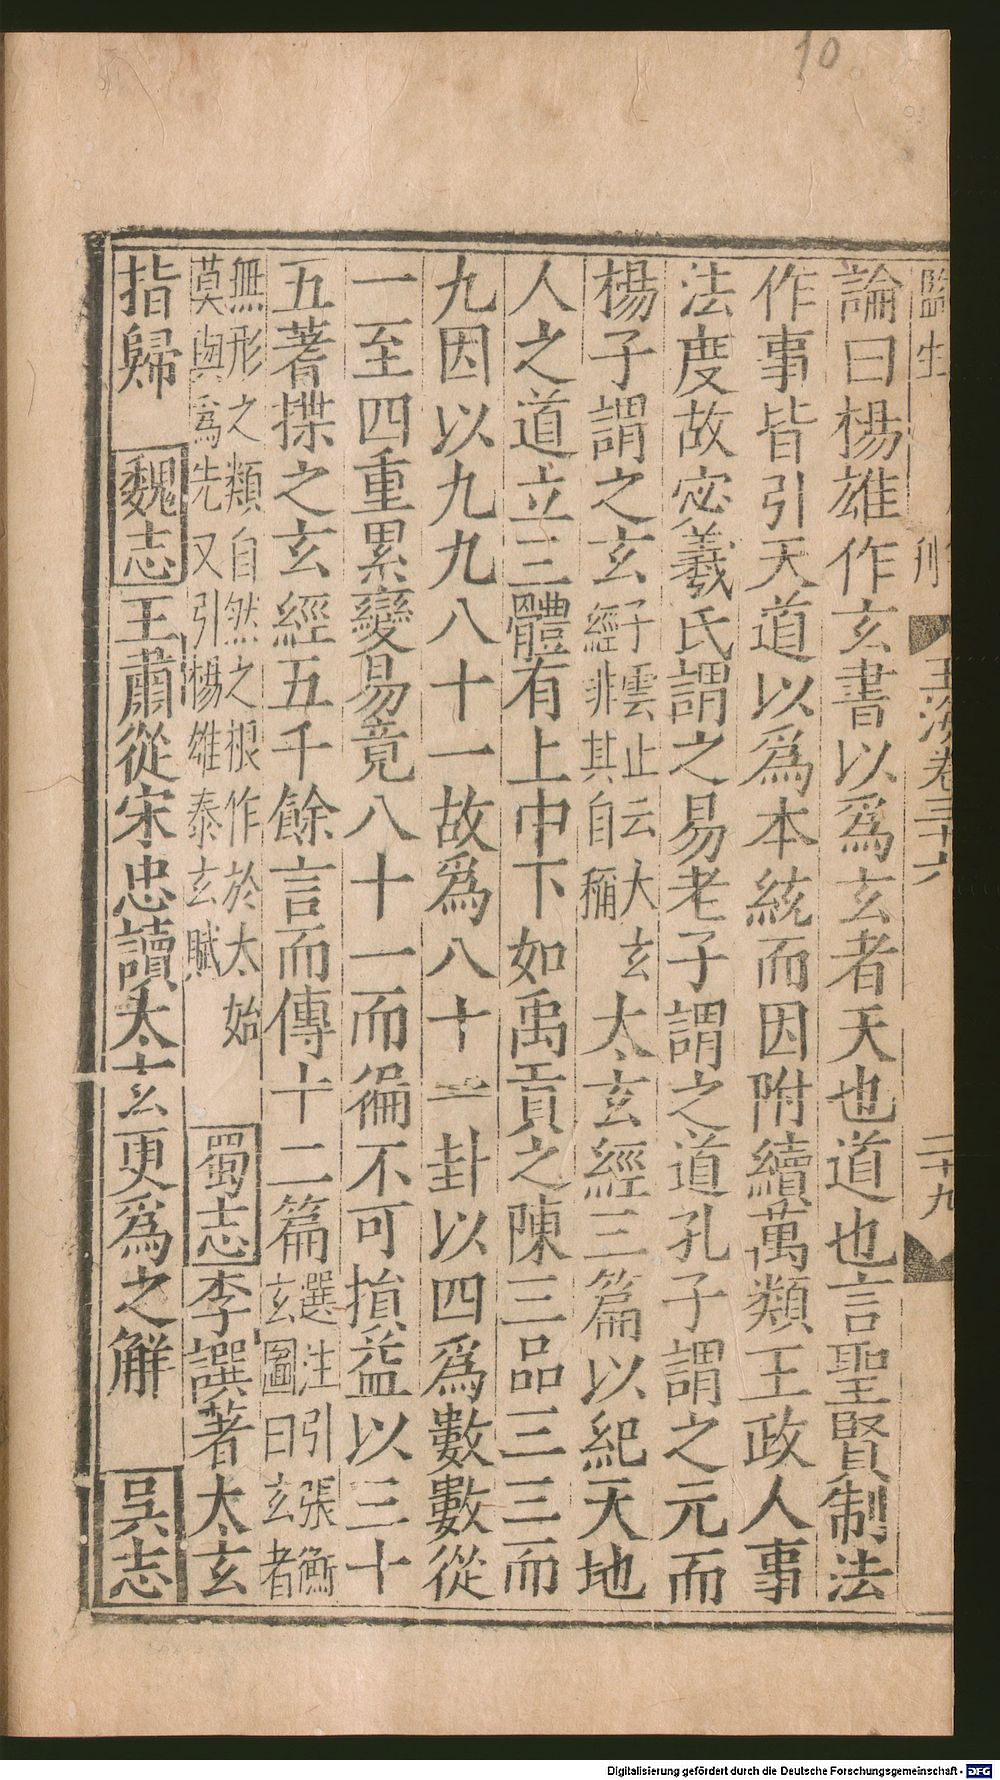 10
監生
玉海卷三十六
二十九
論曰楊雄作玄書以爲玄者天也道也言聖賢制法
作事皆引天道以爲本統而因附續萬類王政人事
法度故宓羲氏謂之易老子謂之道孔子謂之元而
楊子謂之玄子雲止云大玄經非其自稱太玄經三篇以紀天地
人之道立三體有上中下如禹貢之陳三品三三而
九因以九九八十一故爲八十一卦以四爲數數從
一至四重累變易竟八十一而徧不可損益以三十
五蓍揲之玄經五千餘言而傳十二篇選注引張衡玄圖曰玄者
無形之類自然之根作於太始莫與爲先又引楊雄泰玄賦 蜀志李譔著太玄
指歸 魏志王肅從宋忠讀太玄更爲之解 吳志
Digitalisierung gefördert durch die Deutsche Forschungsgemeinschaft - DFG